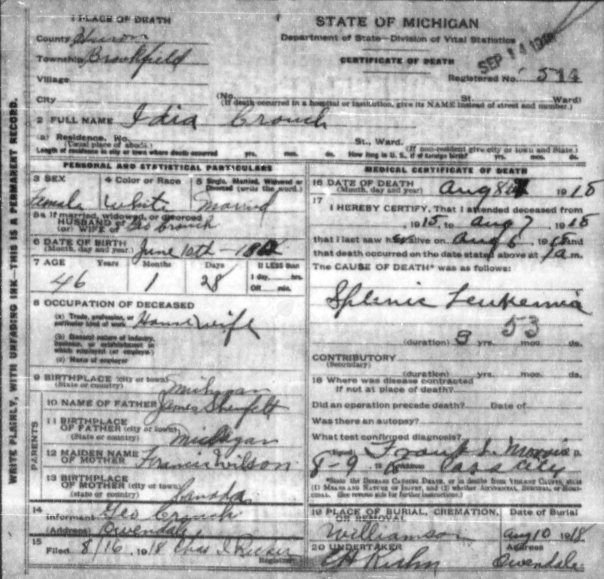 1 PLACE OF DEATH
County Huron
Township Brookfield
Village
City
STATE OF MICHIGAN
Department of State—Division of Vital Statistics
CERTIFICATE OF DEATH
SEP 14
Registered No. 574
(No. St. Ward)
(If death occurred in a hospital or institution, give its NAME instead of street and number.)
2 FULL NAME Idia Crouch
(a) Residence. No. St., Ward.
(Usual place of abode.) (If non-resident give city or town and State.)
Length of residence in city or town where death occurred yrs. mos. ds. How long in U. S., if of foreign birth? yrs. mos. ds.
WRITE PLAINLY, WITH UNFADING INK—THIS IS A PERMANENT RECORD.
PERSONAL AND STATISTICAL PARTICULARS
3 SEX 4 Color or Race 5 Single, Married, Widowed or Divorced (write the word.)
Female White Married
5a If married, widowed, or divorced
HUSBAND of
(or) WIFE of Geo Crouch
6 DATE OF BIRTH
(Month, day and year) June 10th
7 AGE Years Months Days If LESS than
46 1 28 1 day, hrs.
OR min.
8 OCCUPATION OF DECEASED
(a) Trade, profession, or
particular kind of work Housewife
(b) General nature of industry,
business, or establishment in
which employed (or employer)
(c) Name of employer
9 BIRTHPLACE (city or town)
(State or country) Michigan
PARENTS
10 NAME OF FATHER James
11 BIRTHPLACE
OF FATHER (city or town)
(State or country) Michigan
12 MAIDEN NAME
OF MOTHER Francis Wilson
13 BIRTHPLACE
OF MOTHER (city or town)
(state or country) Canada
14
Informant Geo Crouch
(Address) Owendale
15
Filed 8/16, 1918 Chas. I. Ricker
Registrar
MEDICAL CERTIFICATE OF DEATH
16 DATE OF DEATH
(Month, day and year) Aug 8th 1918
17
I HEREBY CERTIFY, That I attended deceased from
1915, to Aug 7, 1918
that I last saw alive on Aug 6, 1918 and
that death occurred on the date stated above at 1 a m.
The CAUSE OF DEATH* was as follows:
Splenic Leukemia
53
(duration) 3 yrs. mos. ds.
CONTRIBUTORY
(Secondary)
(duration) yrs. mos. ds.
18 Where was disease contracted
if not at place of death?
Did an operation precede death? Date of
Was there an autopsy?
What test confirmed diagnosis?
(Signed) Frank L. Morris M. D.
8-9, 1918 (Address) Cass City
*State the DISEASE CAUSING DEATH, or in deaths from VIOLENT CAUSES, state
(1) MEANS AND NATURE OF INJURY, and (2) whether ACCIDENTAL, SUICIDAL, or HOMICIDAL.
(See reverse side for further instructions.)
19 PLACE OF BURIAL, CREMATION, OR REMOVAL Date of Burial
Williamson Aug 10 1918
20 UNDERTAKER Address
Owendale